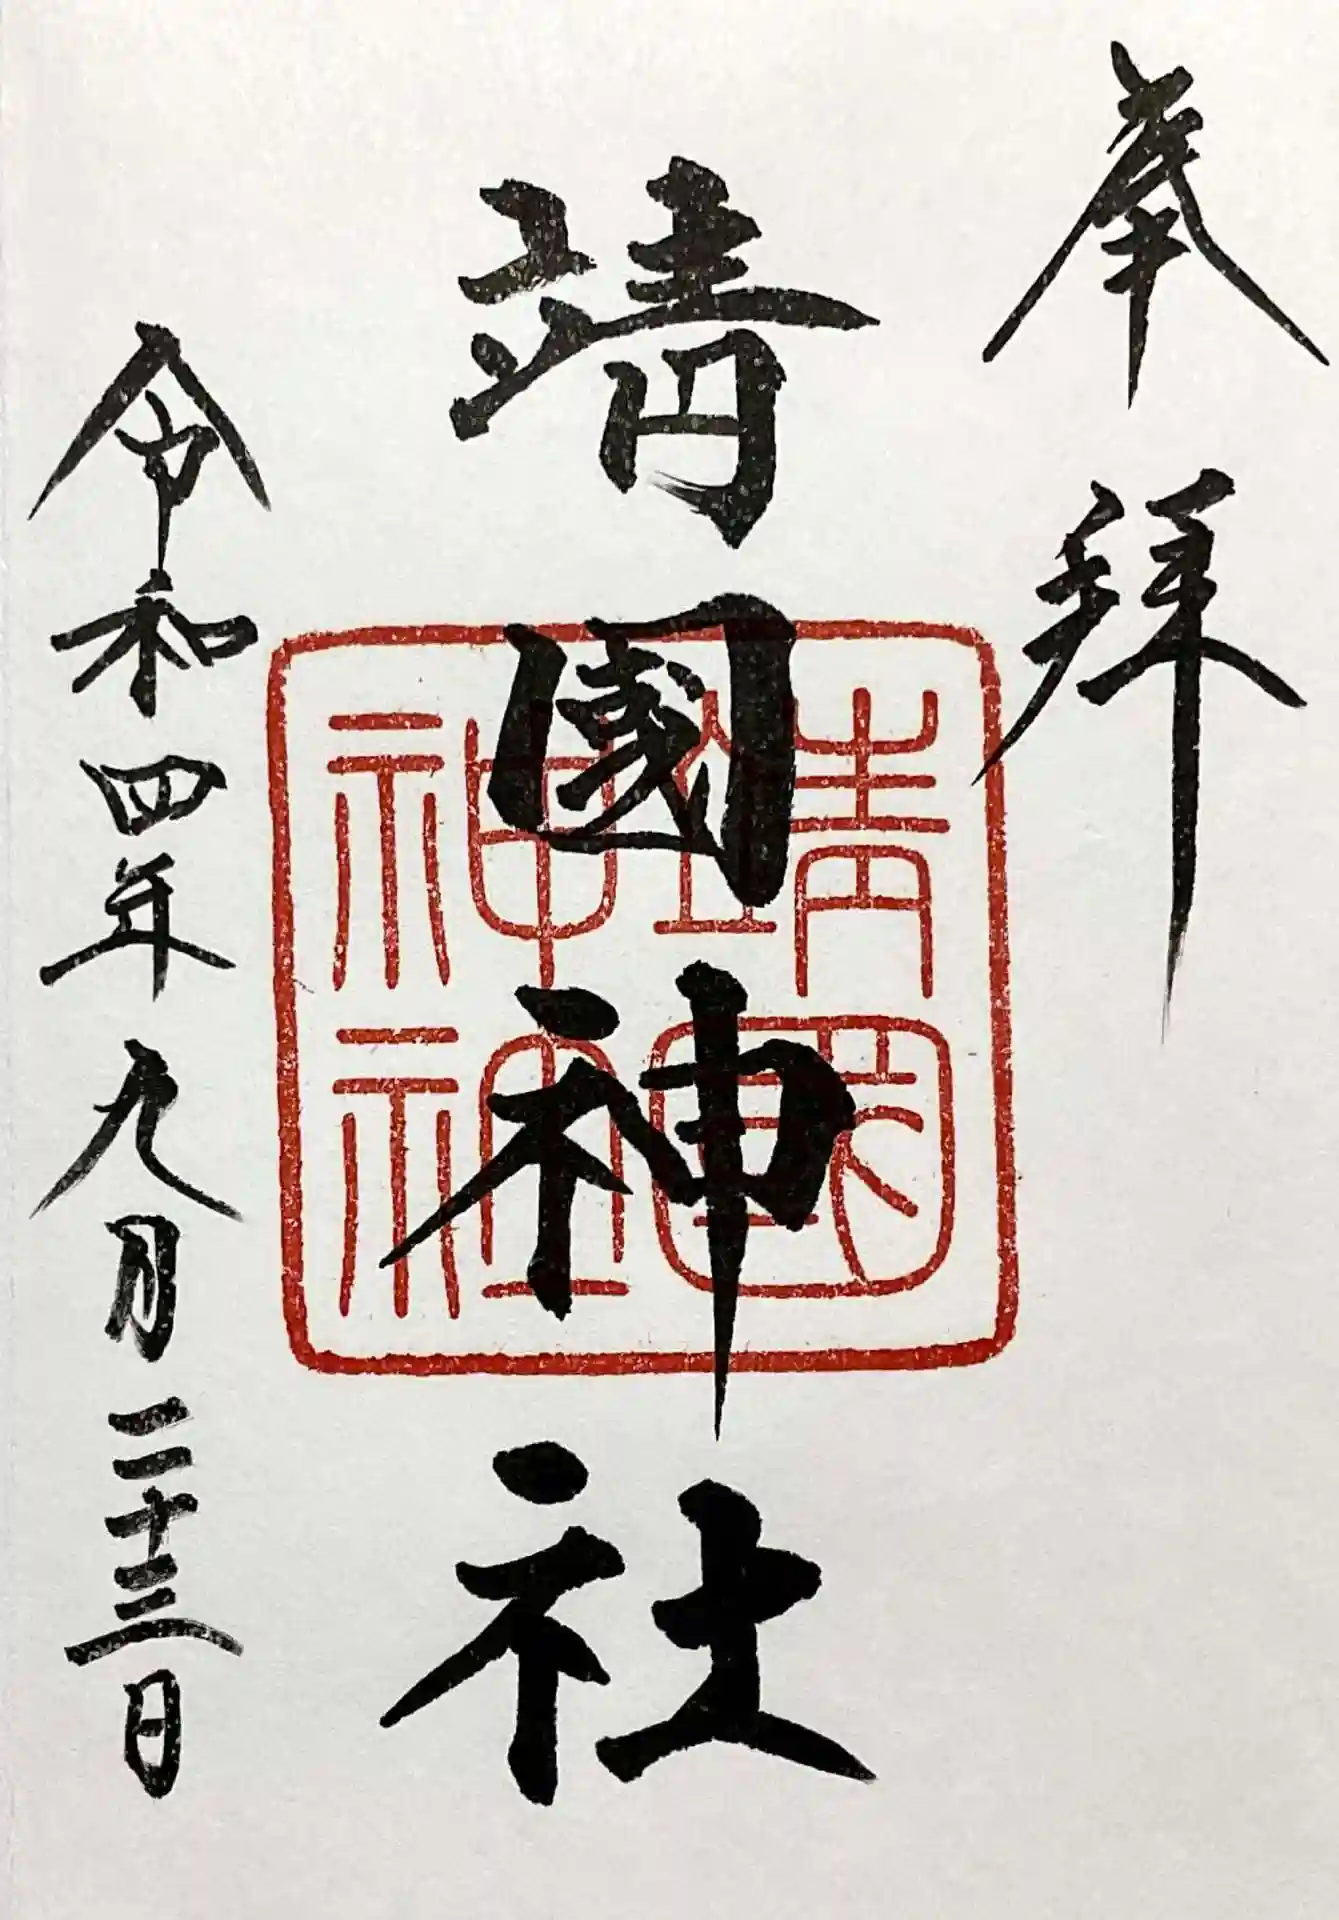 奉拝
靖國神社
靖國
神社
令和四年九月二十三日